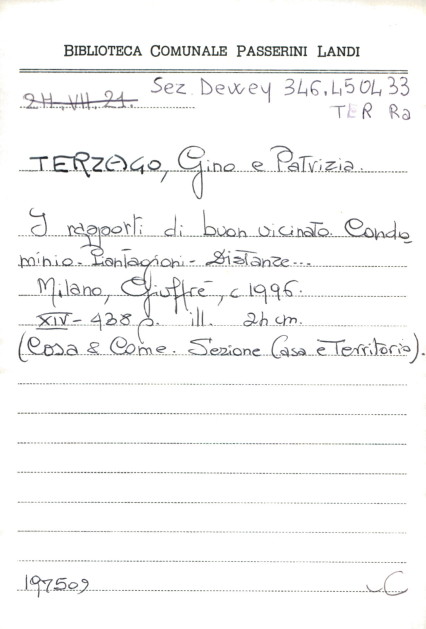 BIBLIOTECA COMUNALE PASSERINI LANDI
2H.VII.21. Sez. Dewey 346.450433
TER Ra
TERZAGO, Gino e Patrizia.
I rapporti di buon vicinato. Condo
minio. Piantagioni - Distanze...
Milano, Giuffrè, c 1996.
XIV - 438 p. ill. 24 cm.
(Cosa & Come. Sezione Casa e Territorio).
197509